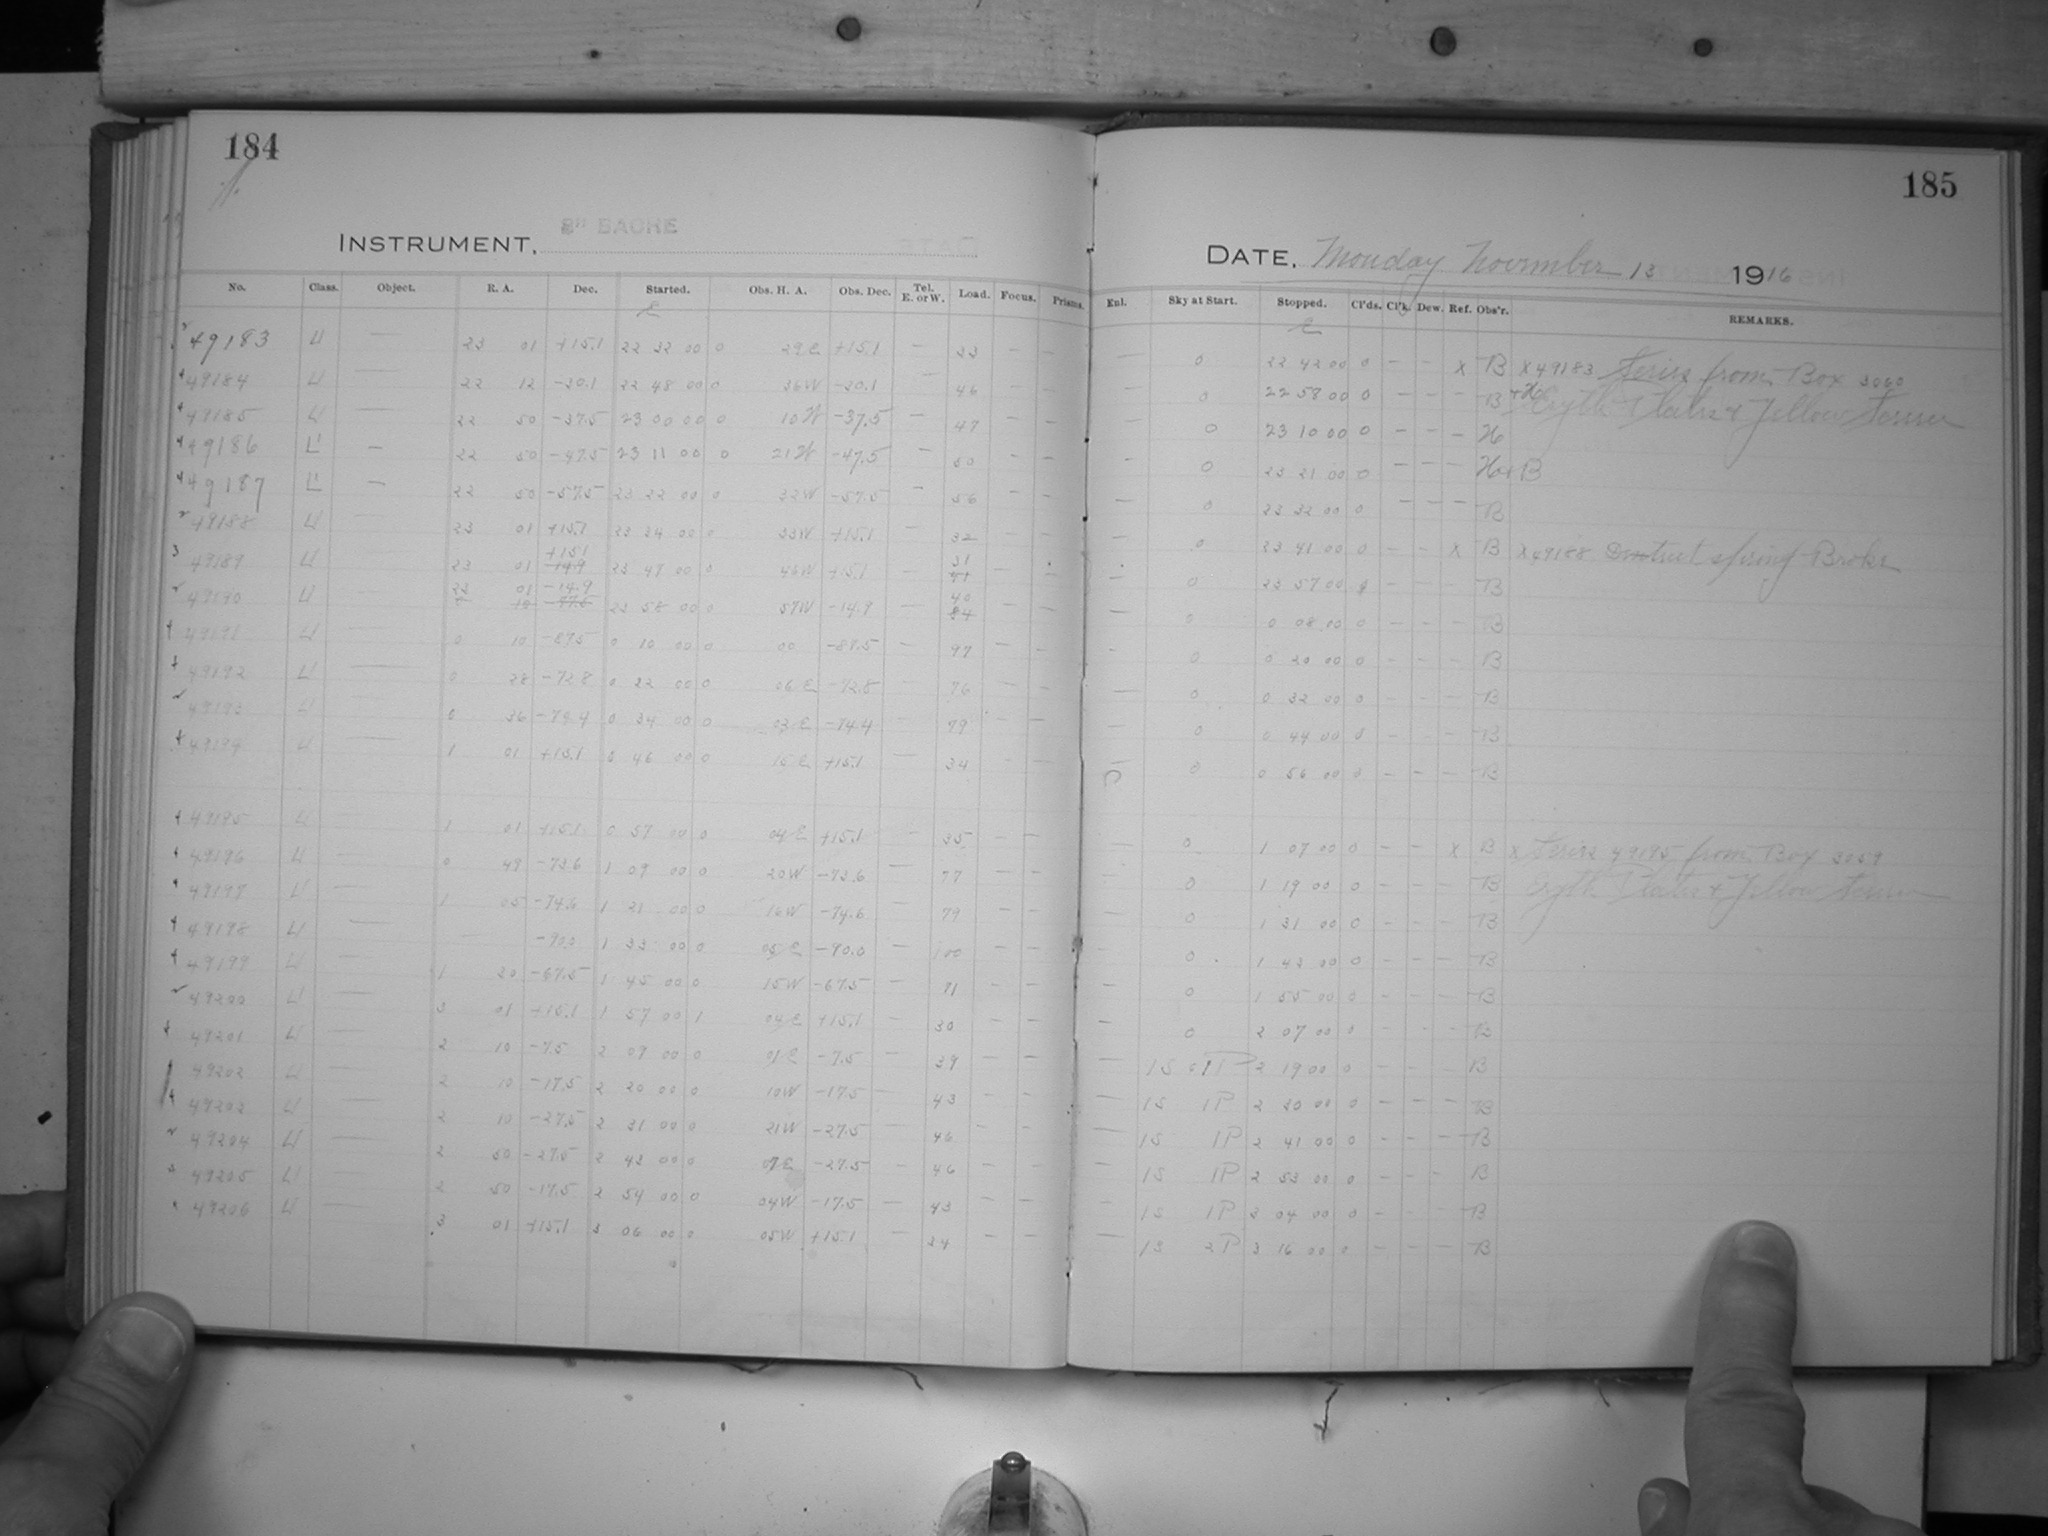 184
INSTRUMENT, 8" BACHE
No. Class. Object. R. A. Dec. Started. Obs. H. A. Obs. Dec. Tel. E. or W. Load. Focus. Prisms.
49183 L — 23 01 +15.1 22 32 00 0 29 E +15.1 — 33 — —
49184 L — 22 12 -30.1 22 48 00 0 36 W -30.1 — 46 — —
49185 L — 22 50 -37.5 23 00 00 0 10 W -37.5 — 47 — —
49186 L — 22 50 -47.5 23 11 00 0 21 W -47.5 — 50 — —
49187 L — 22 50 -57.5 23 22 00 0 32 W -57.5 — 56 — —
49188 L — 23 01 +15.1 23 34 00 0 33 W +15.1 — 32 — —
49189 L — 23 01 +15.1 -14.9 23 47 00 0 46 W +15.1 — 31 41 — —
49190 L — 23 01 -14.9 23 58 00 0 57 W -14.9 — 40 84 — —
49191 L — 0 10 -87.5 0 10 00 0 00 -87.5 — 97 — —
49192 L — 0 28 -72.8 0 22 00 0 06 E -72.8 — 76 — —
49193 L — 0 36 -74.4 0 34 00 0 02 E -74.4 — 79 — —
49194 L — 1 01 +15.1 0 46 00 0 15 E +15.1 — 34 — —
49195 L — 1 01 +15.1 0 57 00 0 04 E +15.1 — 35 — —
49196 L — 0 49 -73.6 1 09 00 0 20 W -73.6 — 77 — —
49197 L — 1 05 -74.6 1 21 00 0 16 W -74.6 — 79 — —
49198 L — -90.0 1 33 00 0 05 E -90.0 — 100 — —
49199 L — 1 30 -67.5 1 45 00 0 15 W -67.5 — 71 — —
49200 L — 3 01 +15.1 1 57 00 1 04 E +15.1 — 30 — —
49201 L — 2 10 -7.5 2 09 00 0 01 E -7.5 — 39 — —
49202 L — 2 10 -17.5 2 20 00 0 10 W -17.5 — 43 — —
49203 L — 2 10 -27.5 2 31 00 0 21 W -27.5 — 46 — —
49204 L — 2 50 -27.5 2 43 00 0 07 E -27.5 — 46 — —
49205 L — 2 50 -17.5 2 54 00 0 04 W -17.5 — 43 — —
49206 L — 3 01 +15.1 3 06 00 0 05 W +15.1 — 34 — —
185
DATE, Monday November 13 1916
Enl. Sky at Start. Stopped. Cl'ds. Cl'k. Dew. Ref. Obs'r. REMARKS.
— 0 22 42 00 0 — — x B x 49183 Series from Box 3060
— 0 22 58 00 0 — — — B + Ho Eryth Plates & Yellow Screen
— 0 23 10 00 0 — — — Ho
— 0 23 21 00 0 — — — Ho + B
— 0 23 32 00 0 — — — B
— 0 23 41 00 0 — — x B x 49188 spring Broke
— 0 23 57 00 0 — — — B
— 0 0 08 00 0 — — — B
— 0 0 20 00 0 — — — B
— 0 0 32 00 0 — — — B
— 0 0 44 00 0 — — — B
— 0 0 56 00 0 — — — B
— 0 1 07 00 0 — — x B x Series 49195 from Box 3059
— 0 1 19 00 0 — — — B Eryth Plates & Yellow Screen
— 0 1 31 00 0 — — — B
— 0 1 43 00 0 — — — B
— 0 1 55 00 0 — — — B
— 0 2 07 00 0 — — — B
— 1S P 2 19 00 0 — — — B
— 1S 1P 2 30 00 0 — — — B
— 1S 1P 2 41 00 0 — — — B
— 1S 1P 2 53 00 0 — — — B
— 1S 1P 3 04 00 0 — — — B
— 1S 2P 3 16 00 0 — — — B